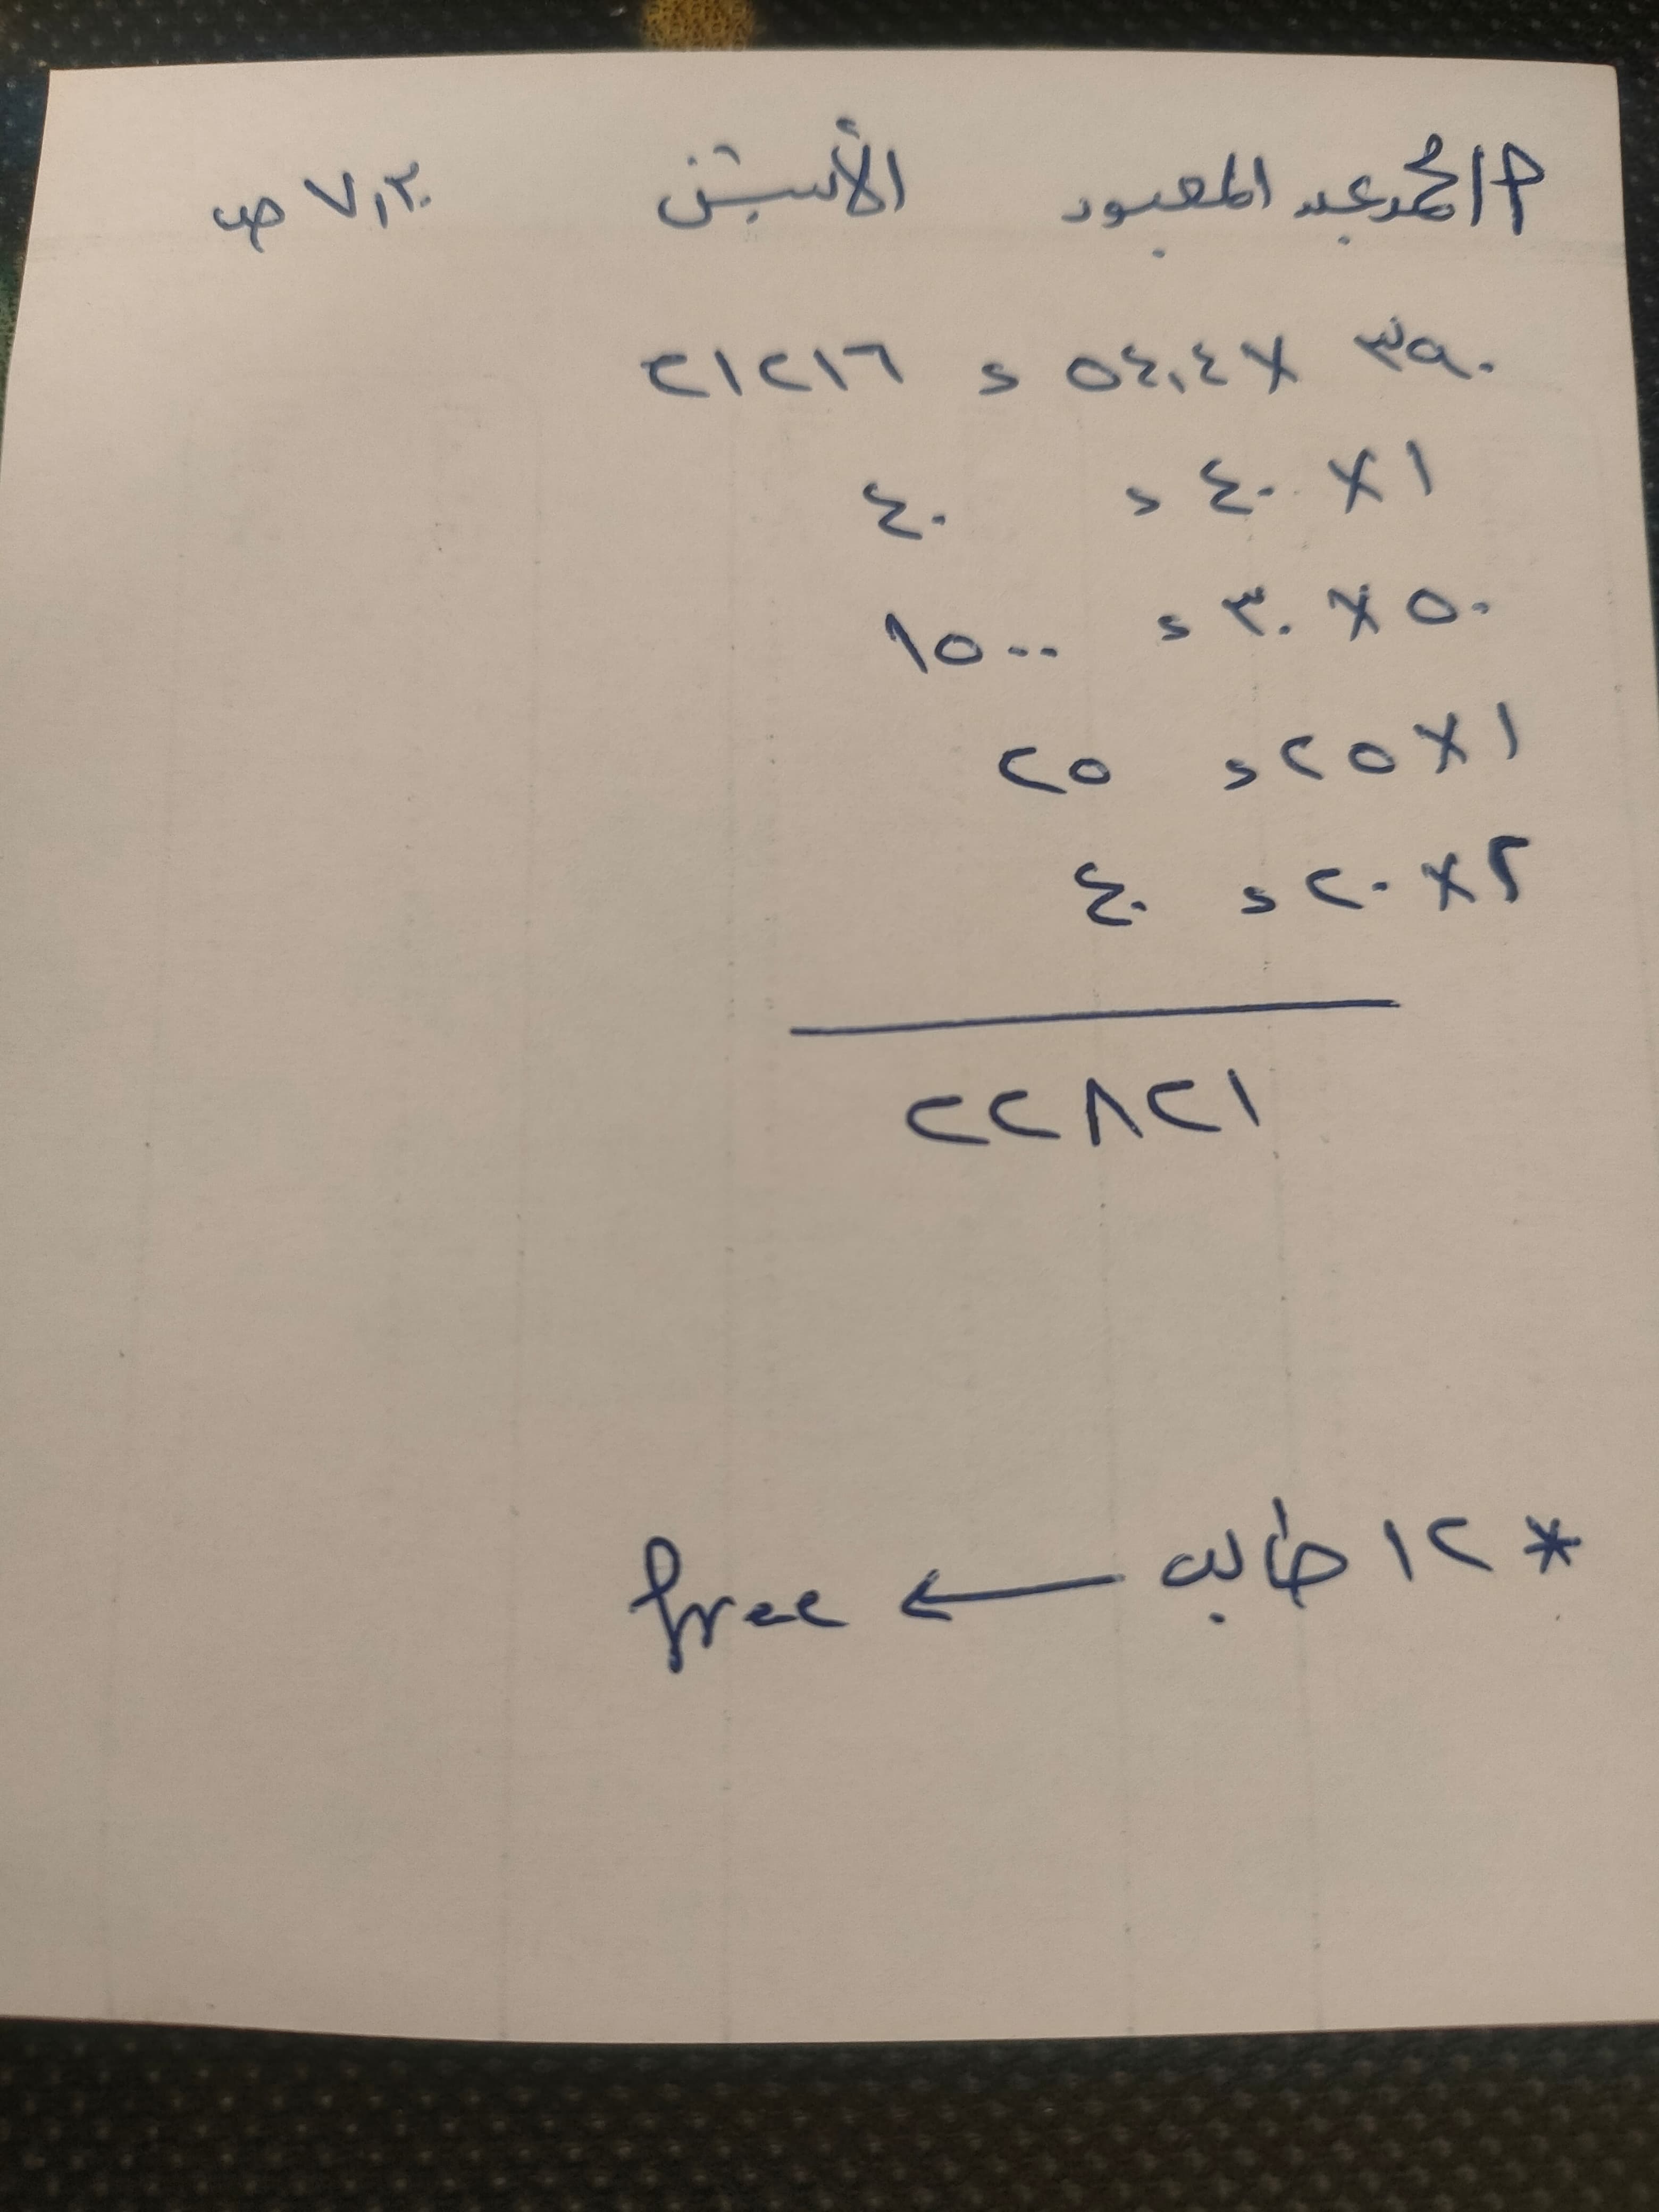 م/ احمد عبد المعبود الأثنين ٧,٣٠ ص
٣٩٠ × ٥٤,٤ = ٢١٢١٦
١ × ٤٠ = ٤٠
٥٠ × ٣٠ = ١٥٠٠
١ × ٢٥ = ٢٥
٢ × ٢٠ = ٤٠
٢٢٨٢١
* ١٢ طالب ← free